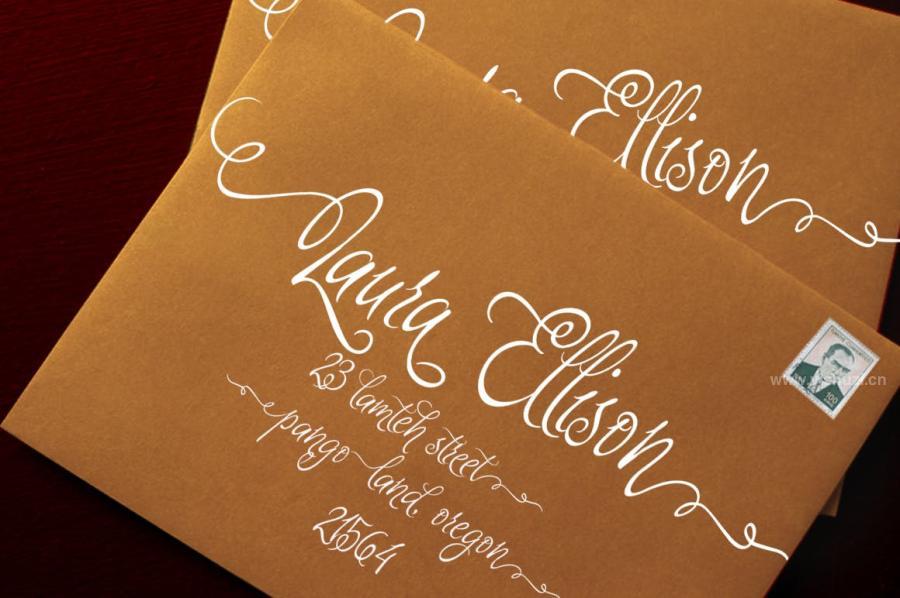 Ellison
Laura Ellison
23 lamteh street
pango land, oregon
21564
100
www.yishuzi.cn